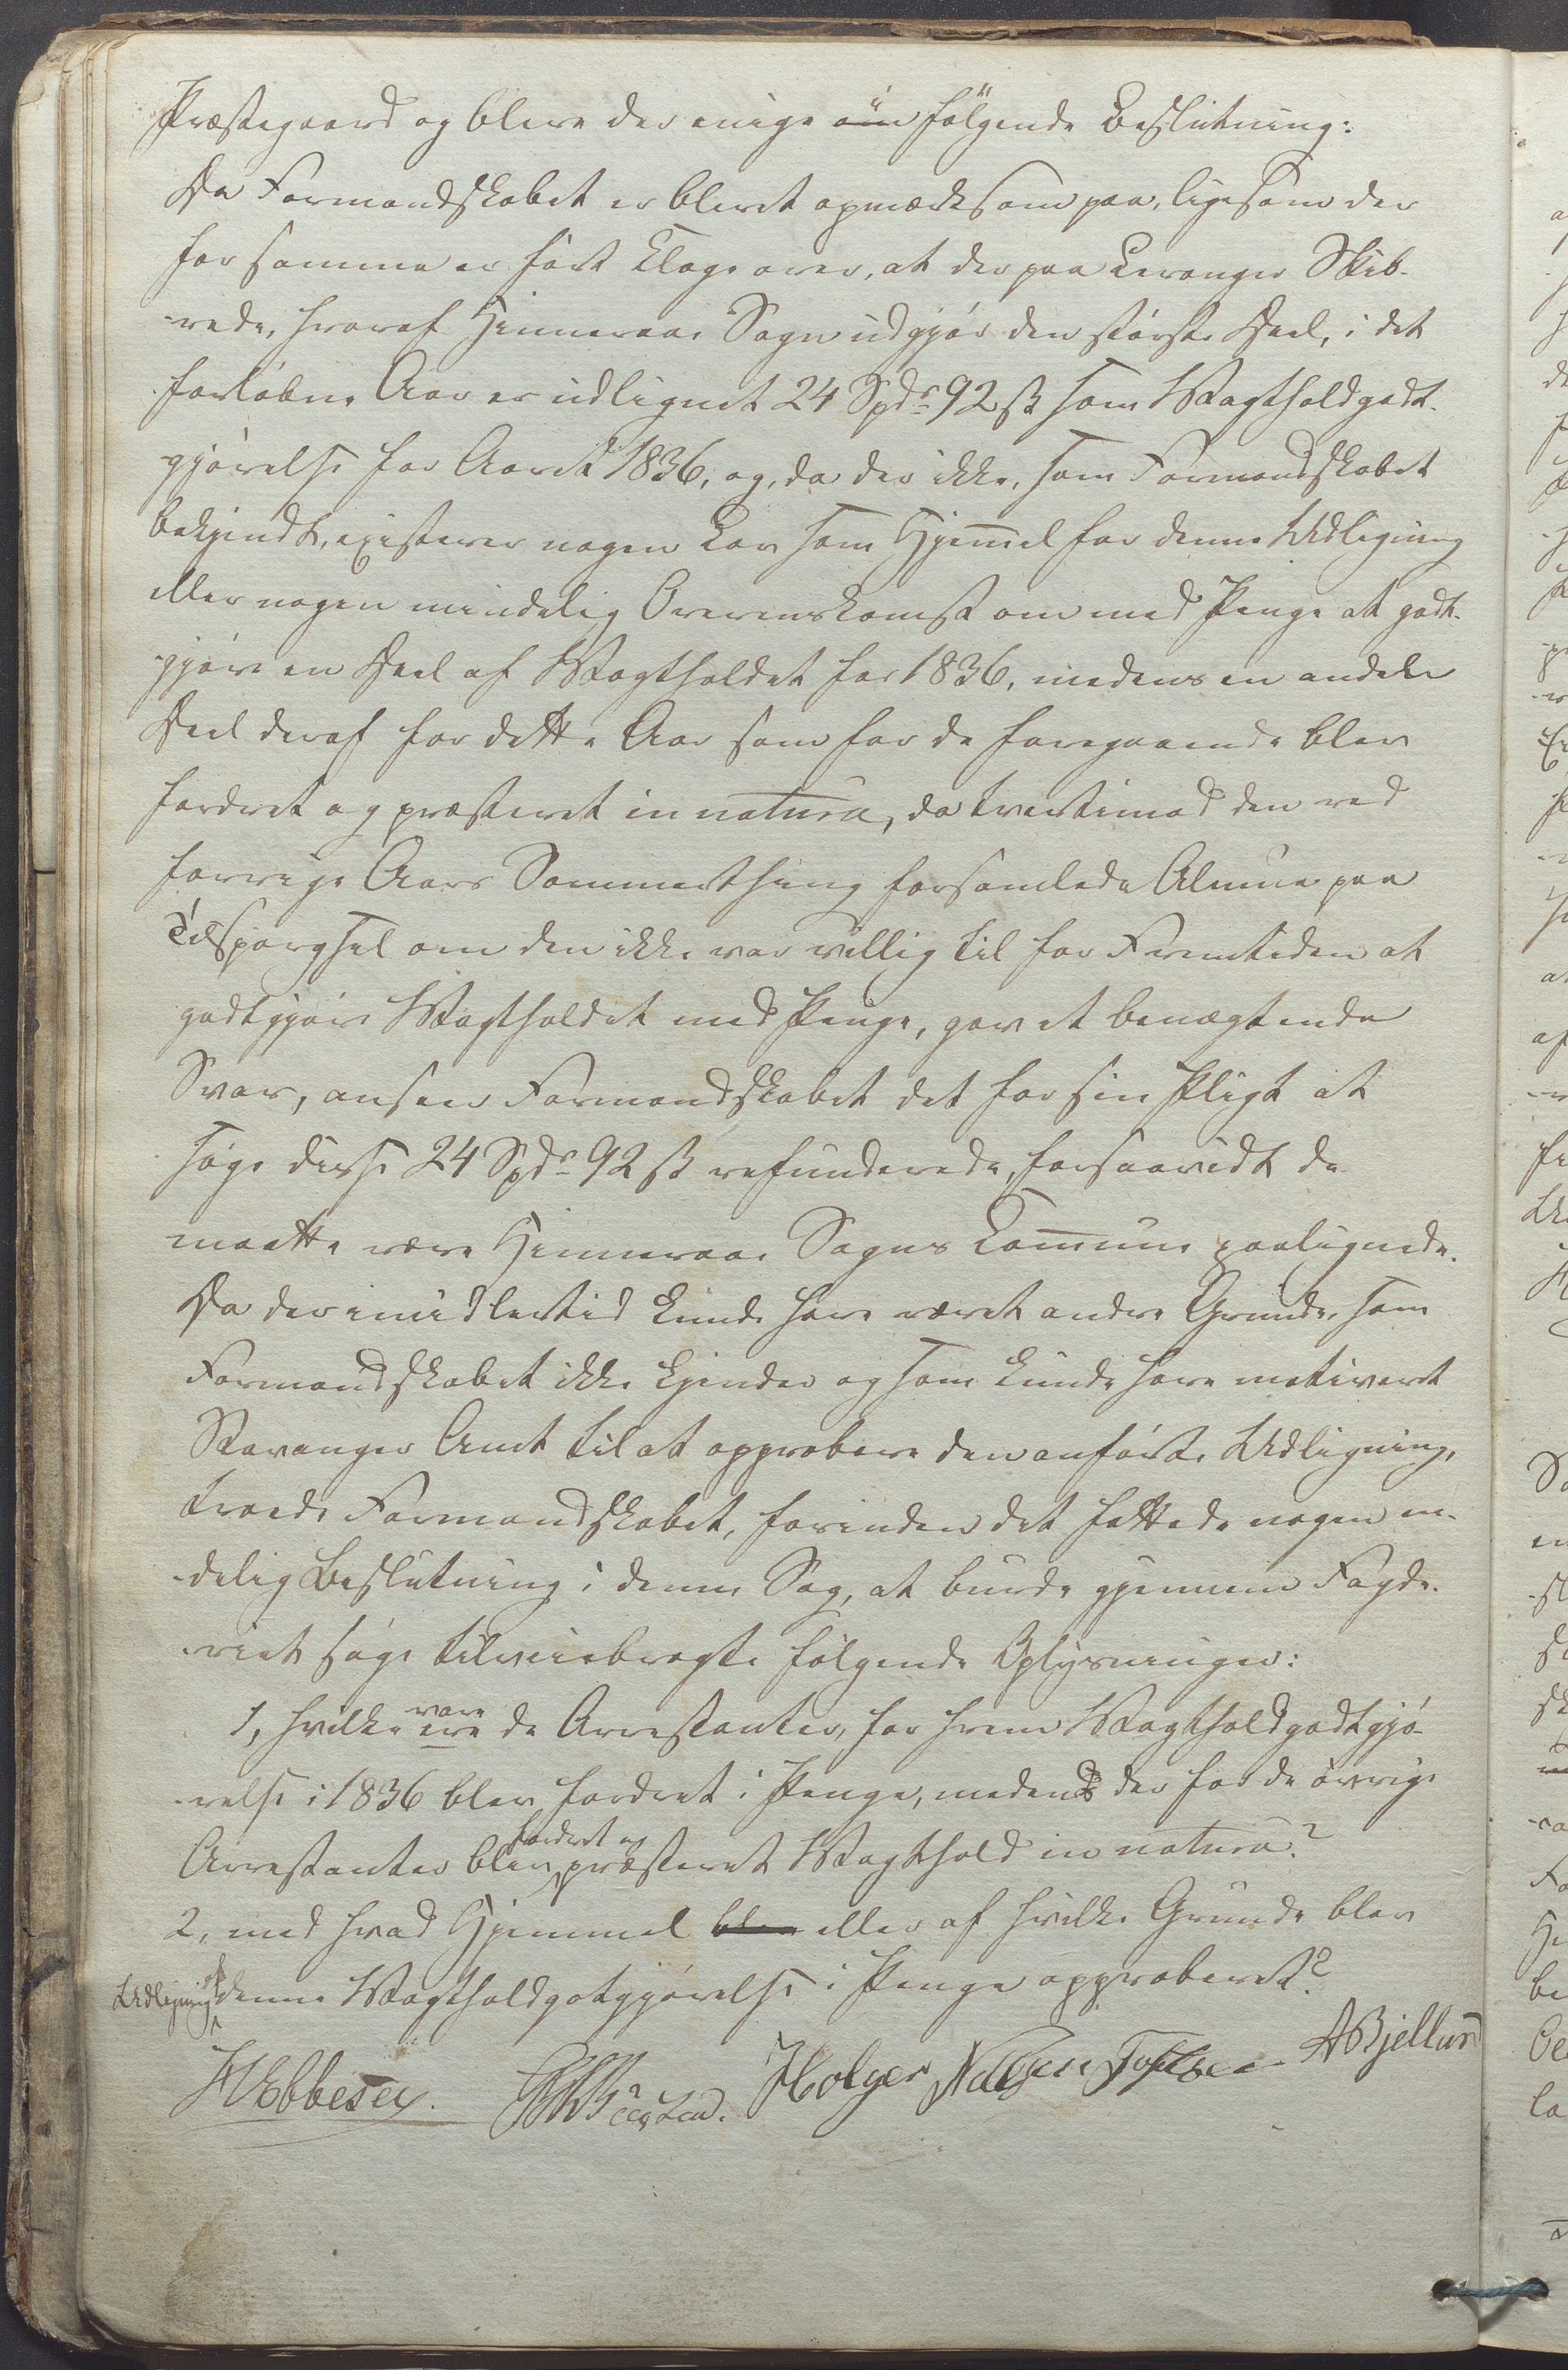 Præstegaard og bleve der enige om i følgende Beslutning:
Da Formandskabet er blevet opmærksom paa, ligesom der
for samme er ført Klage over, at der paa Leranger Skib-
-rede, hvoraf Hinneraae Sogn udgjør den største Deel, i det
forløbne Aar er udlignet 24 Spdr 92 ß som Vagtholdgodt-
gjørelse for Aaret 1836, og, da der ikke, som Formandskabet
bekjendt, existerer nogen Lov som Hjemel for denne Udligning
eller nogen mindelig Overenskomst om med Penge at godt-
gjøre en Deel af Vagtholdet for 1836, medens en anden
Deel deraf for dette Aar som for de foregaaende blev
fordret og præsteret in natura, da tvertimod den ved
forrige Aars Sommerthing forsamlede Almue paa
Tilspørgsel om den ikke var villig til for Fremtiden at
godtgjøre Vagtholdet med Penge, gav et benægtende
Svar, anseer Formandskabet det for sin Pligt at
søge disse 24 Spdr 92 ß refunderede, forsaavidt de
maatte være Hinneraae Sogns Comune paalignede.
Da der imidlertid kunde have været andre Grunde, som
Formandskabet ikke kjender og som kunde have motiveret
Stavanger Amt til at approbere den anførte Udligning,
troede Formandskabet, forinden det fattede nogen en-
-delig Beslutning i denne Sag, at burde gjennem Fogde-
-riet søge tilveiebragte følgende Oplysninger:
1, hvilke ere vare de Arrestanter, for hvem Vagtholdgodtgjø-
-relse i 1836 blev fordret i Penge, medens der for de øvrige
Arrestanter blev fordret og præsteret Vagthold in natura?
2, med hvad Hjemmel blev eller af hvilke Grunde blev
Udligning af denne Vagtholdgotgjørelse i Penge approberet?
H Ebbesen. Holger Nilsen Tofte A Bjelland